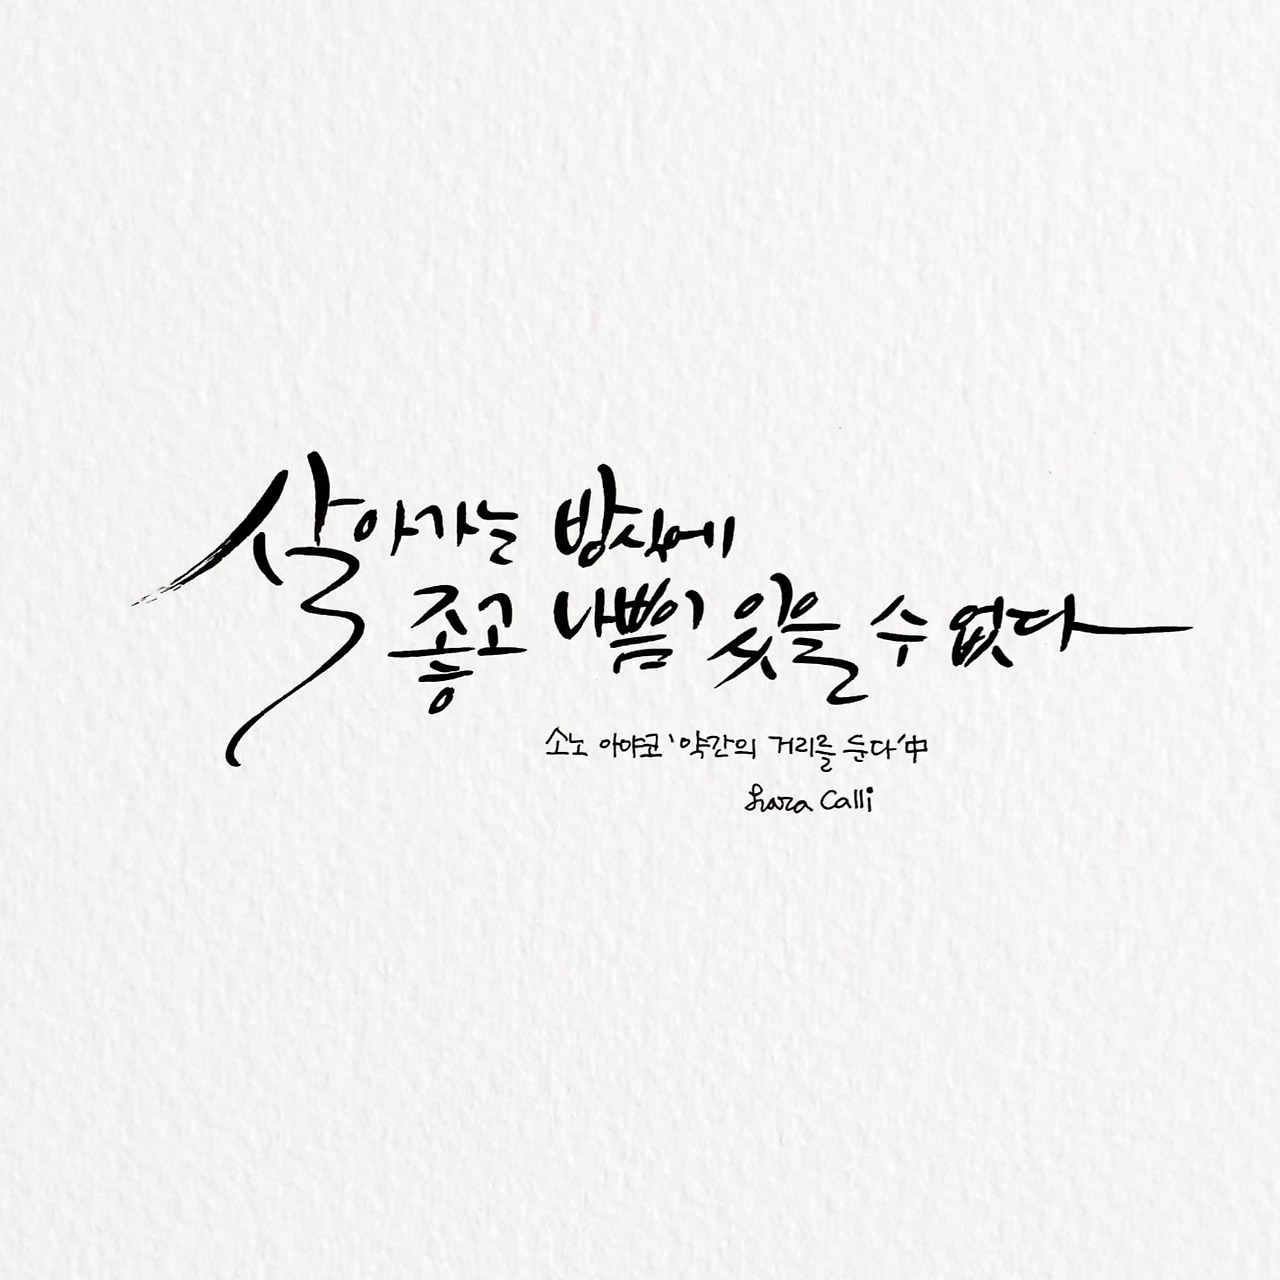 살아가는 방식에
좋고 나쁨이 있을 수 없다
소노 아야코 '약간의 거리를 둔다' 中
hara Calli